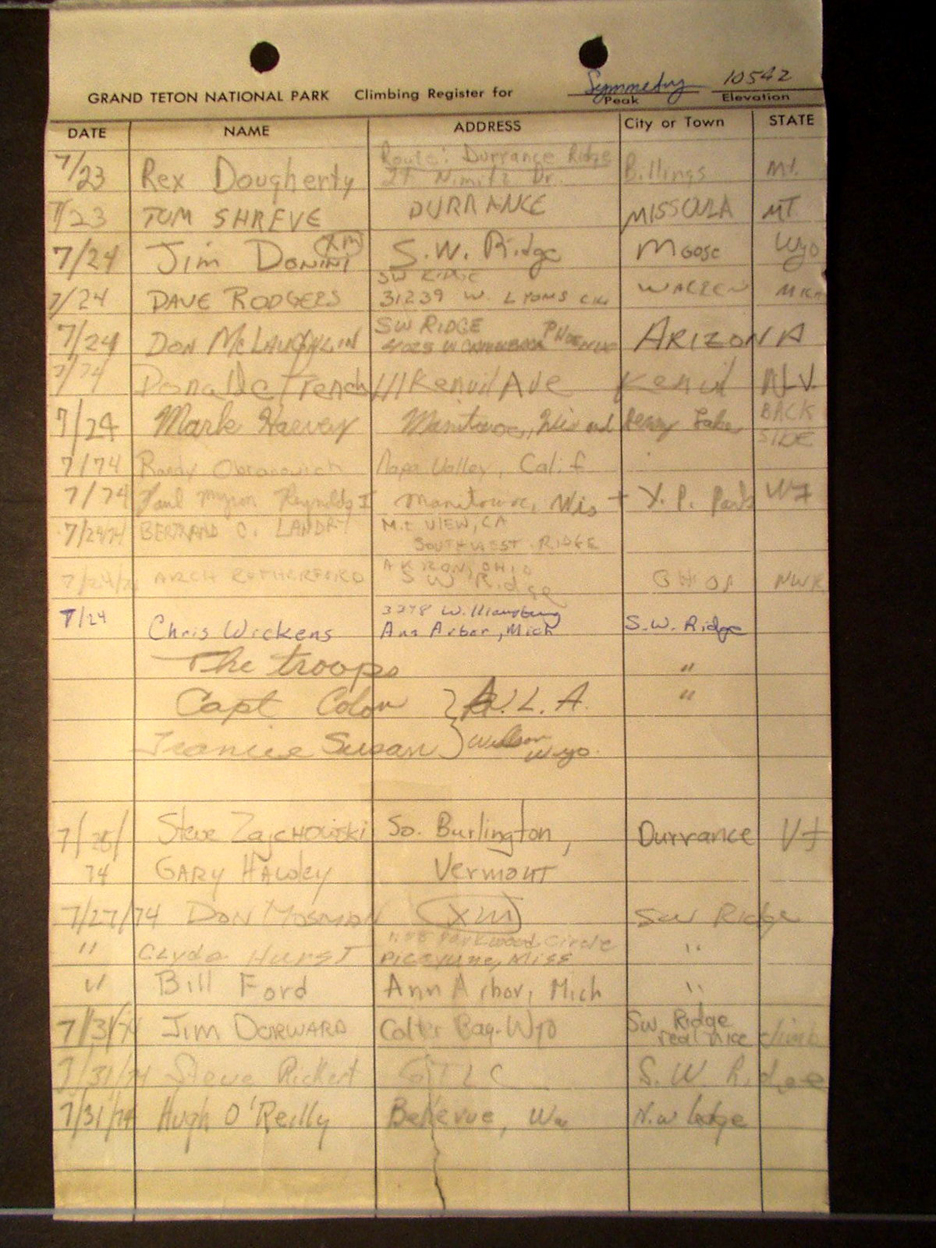 Symmetry 10542
GRAND TETON NATIONAL PARK Climbing Register for Peak Elevation
DATE NAME ADDRESS City or Town STATE
Route: Durrance Ridge
7/23 Rex Dougherty 21 Nimitz Dr. Billings Mt.
7/23 TOM SHREVE DURRANCE MISSOULA MT
7/24 Jim DONINI (XM) S.W. Ridge Moose Wyo
SW RIDGE
7/24 DAVE RODGERS 31239 W. LYONS CIR WARREN MICH
SW RIDGE
7/24 DON McLAUGHLIN PHOENIX ARIZONA
7/74 French 111 Kenvil Ave Kenvil N.J.
7/24 Mark Harvey Manitowoc, Wis and Jenny Lake BACK
SIDE
7/74 Randy Obranovich Napa Valley, Calif
7/74 Paul Myron Reynolds I Manitowoc, Wis + Y. P. Park
7/24/74 BERTRAND C. LANDRY Mt VIEW, CA
SOUTHWEST RIDGE
AKRON, OHIO
7/24/74 ARCH RUTHERFORD S W Ridge
3278 Williamsburg
7/24 Chris Wickens Ann Arbor, Mich S.W. Ridge
The troops "
Capt Colon } A.L.A. "
Jeanie Susan } Wilson
Wyo.
7/25/ Steve Zajchowski So. Burlington, Durrance Vt
74 GARY HAWLEY VERMONT
7/27/74 DON MOSMAN (XM) SW Ridge
Parkwood Circle
" CLYDE HURST PICAYUNE, MISS "
" Bill Ford Ann Arbor, Mich "
7/31/74 JIM DORWARD Colter Bay-Wyo SW Ridge
real nice climb
7/31/74 Steve Rickert GTLC S. W. Ridge
7/31/74 Hugh O'Reilly Bellevue, Wa N.W ledge